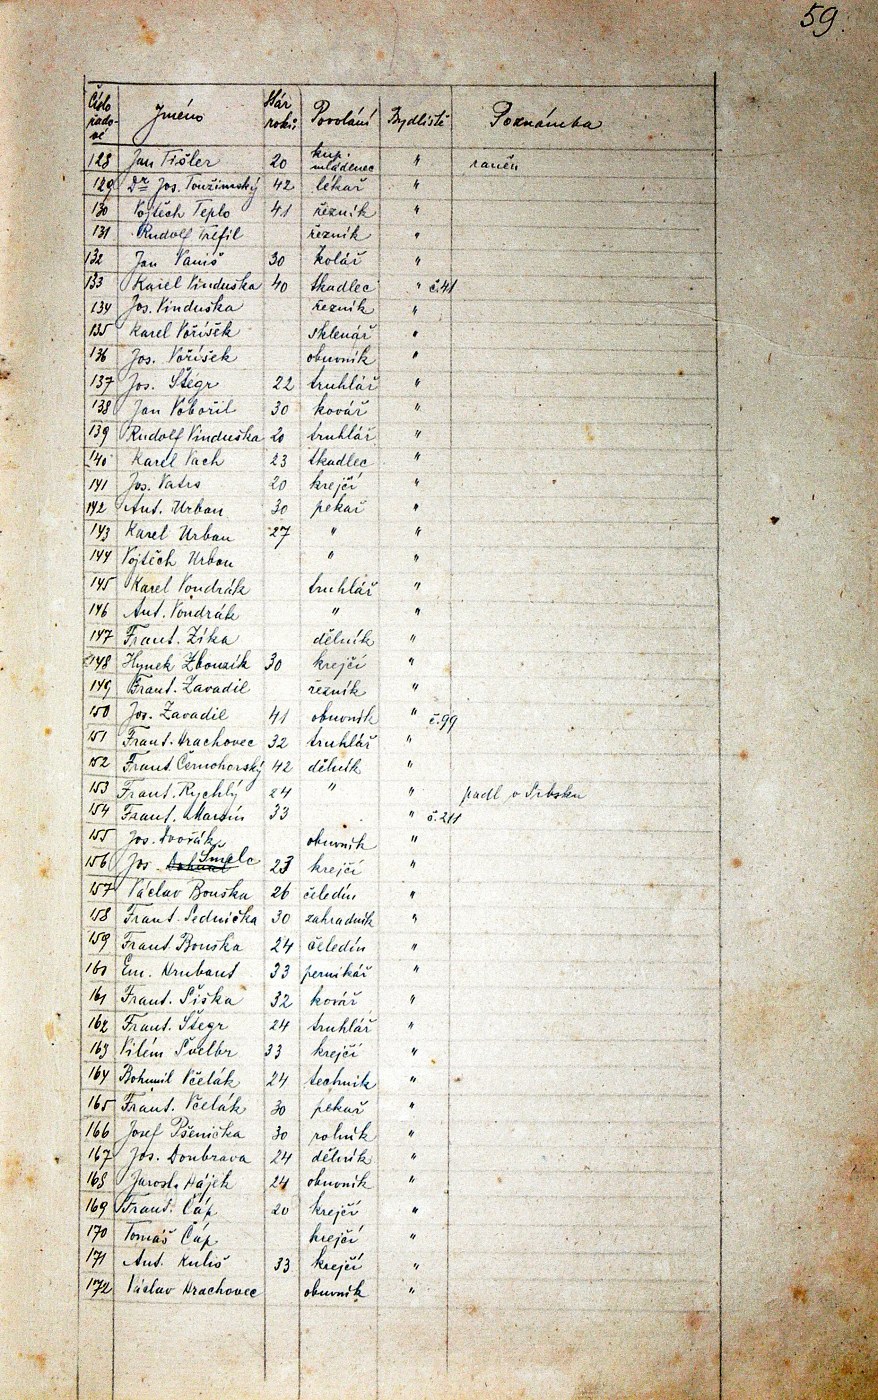 59
Číslo pořadové Jméno Stár roků: Povolání Bydliště Poznámka
128 Jan Tišler 20 kup. mládenec " raněn
129 Dr Jos. Toužimský 42 lékař "
130 Vojtěch Teplo 41 řezník "
131 Rudolf Trefil řezník "
132 Jan Vaniš 30 kolář "
133 Karel Vinduška 40 tkadlec " č. 41
134 Jos. Vinduška řezník "
135 Karel Voříšek sklenář "
136 Jos. Voříšek obuvník "
137 Jos. Štégr 22 truhlář "
138 Jan Vobořil 30 kovář "
139 Rudolf Vinduška 20 truhlář "
140 Karel Vach 23 tkadlec "
141 Jos. 20 krejčí "
142 Ant. Urban 30 pekař "
143 Karel Urban 27 " "
144 Vojtěch Urban " "
145 Karel Vondrák truhlář "
146 Ant. Vondrák " "
147 Frant. Zíka dělník "
148 Hynek Zbouzík 30 krejčí "
149 Frant. Zavadil řezník "
150 Jos. Zavadil 41 obuvník " č. 99
151 Frant. Hrachovec 32 truhlář "
152 Frant. Černohorský 42 dělník "
153 Frant. Rychlý 24 " " padl v Srbsku
154 Frant. 33 " č. 211
155 Jos. Dvořák obuvník "
156 Jos. Smolc 23 krejčí "
157 Václav Bouška 26 čeledín "
158 Frant. Sednička 30 zahradník "
159 Frant. Bouška 24 čeledín "
160 Em. Hrubant 33 perníkář "
161 Frant. Šiška 32 kovář "
162 Frant. Štegr 24 truhlář "
163 Vilém 33 krejčí "
164 Bohumil Včelák 24 technik "
165 Frant. Včelák 30 pekař "
166 Josef Pšenička 30 rolník "
167 Jos. Doubrava 24 dělník "
168 Jarosl. Hájek 24 obuvník "
169 Frant. Čáp 20 krejčí "
170 Tomáš Čáp krejčí "
171 Ant. Kuliš 33 krejčí "
172 Václav Hrachovec obuvník "